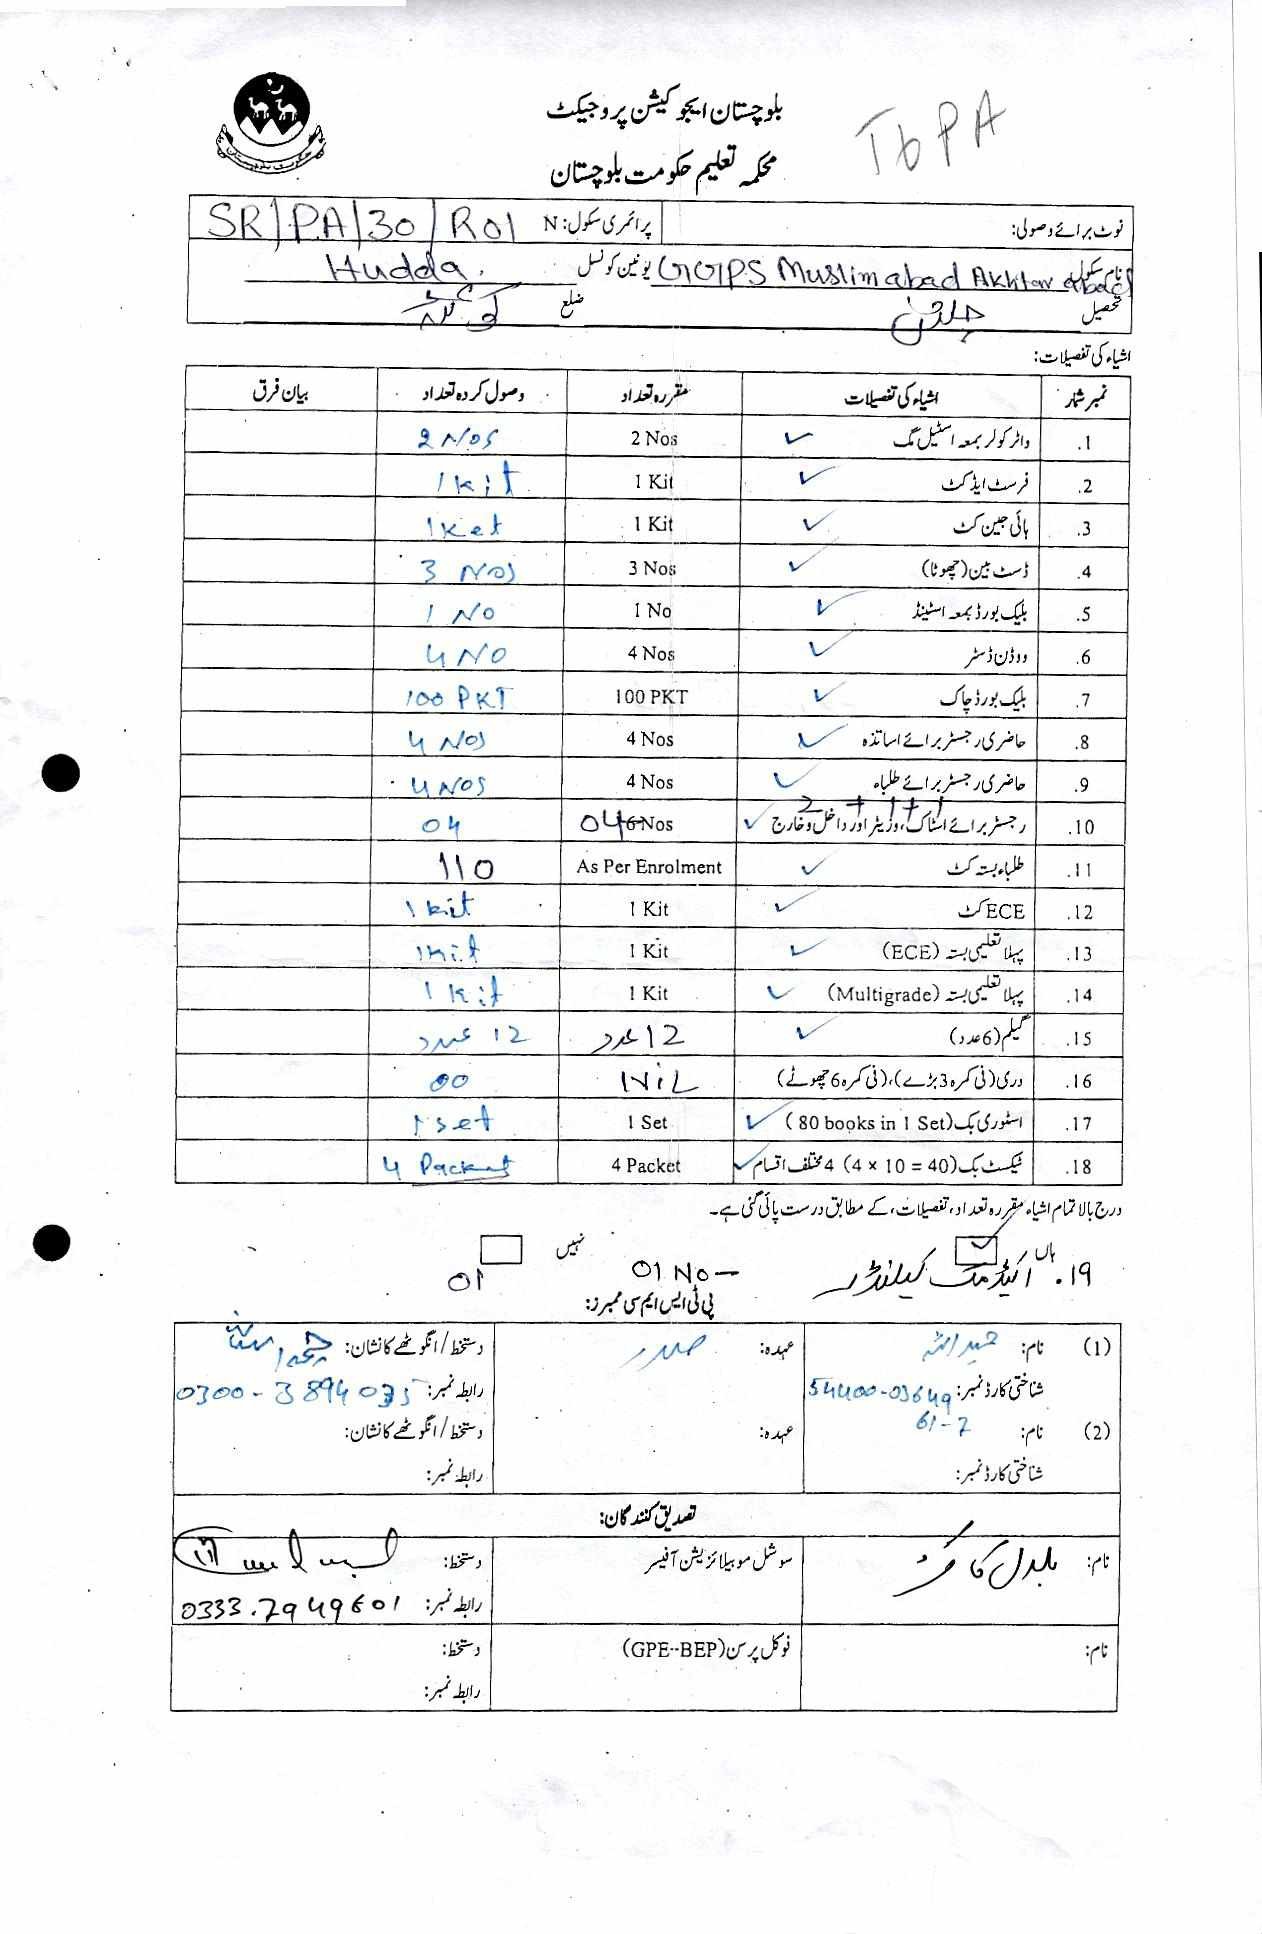 بلوچستان ایجوکیشن پروجیکٹ
TbPA
محکمہ تعلیم حکومت بلوچستان
نوٹ برائے وصولی: پرائمری سکول: N SR/PA/30/R01
نام سکول GGPS Muslimabad Akhtar abad یونین کونسل Hudda.
تحصیل چلتن ضلع کوئٹہ
اشیاء کی تفصیلات:
نمبر شمار اشیاء کی تفصیلات مقررہ تعداد وصول کردہ تعداد بیان فرق
1. واٹر کولر بمعہ اسٹیل مگ ✓ 2 Nos 2 Nos
2. فرسٹ ایڈ کٹ ✓ 1 Kit 1 kit
3. ہائی جین کٹ ✓ 1 Kit 1 Ket
4. ڈسٹ بین (چھوٹا) ✓ 3 Nos 3 Nos
5. بلیک بورڈ بمعہ اسٹینڈ ✓ 1 No 1 No
6. ووڈن ڈسٹر ✓ 4 Nos 4 No
7. بلیک بورڈ چاک ✓ 100 PKT 100 PKT
8. حاضری رجسٹر برائے اساتذہ ✓ 4 Nos 4 Nos
9. حاضری رجسٹر برائے طلباء ✓ 4 Nos 4 Nos
2 + 1 + 1
10. رجسٹر برائے اسٹاک، وزیٹر اور داخل و خارج ✓ 04 6 Nos 04
11. طلباء بستہ کٹ ✓ As Per Enrolment 110
12. ECE کٹ ✓ 1 Kit 1 kit
13. پہلا تعلیمی بستہ (ECE) ✓ 1 Kit 1 Kit
14. پہلا تعلیمی بستہ (Multigrade) ✓ 1 Kit 1 Kit
15. گیلم (6 عدد) ✓ 12 عدد 12 عدد
16. دری (فی کمرہ 3 بڑے)، (فی کمرہ 6 چھوٹے) NiL 00
17. اسٹوری بک (80 books in 1 Set) ✓ 1 Set 1 set
18. ٹیکسٹ بک (4 × 10 = 40) 4 مختلف اقسام ✓ 4 Packet 4 Packet
درج بالا تمام اشیاء مقررہ تعداد، تفصیلات، کے مطابق درست پائی گئی ہے۔
ہاں ✓ نہیں
19. اکیڈمک کیلنڈر 01 No — 01
پی ٹی ایس ایم سی ممبرز:
(1) نام: حمید اللہ عہدہ: صدر دستخط/انگوٹھے کا نشان:
شناختی کارڈ نمبر: 54400-0364961-7 رابطہ نمبر: 0300-3894035
(2) نام: عہدہ: دستخط/انگوٹھے کا نشان:
شناختی کارڈ نمبر: رابطہ نمبر:
تصدیق کنندگان:
نام: سوشل موبیلائزیشن آفیسر دستخط:
رابطہ نمبر: 0333.7949601
نام: فوکل پرسن (GPE--BEP) دستخط:
رابطہ نمبر: